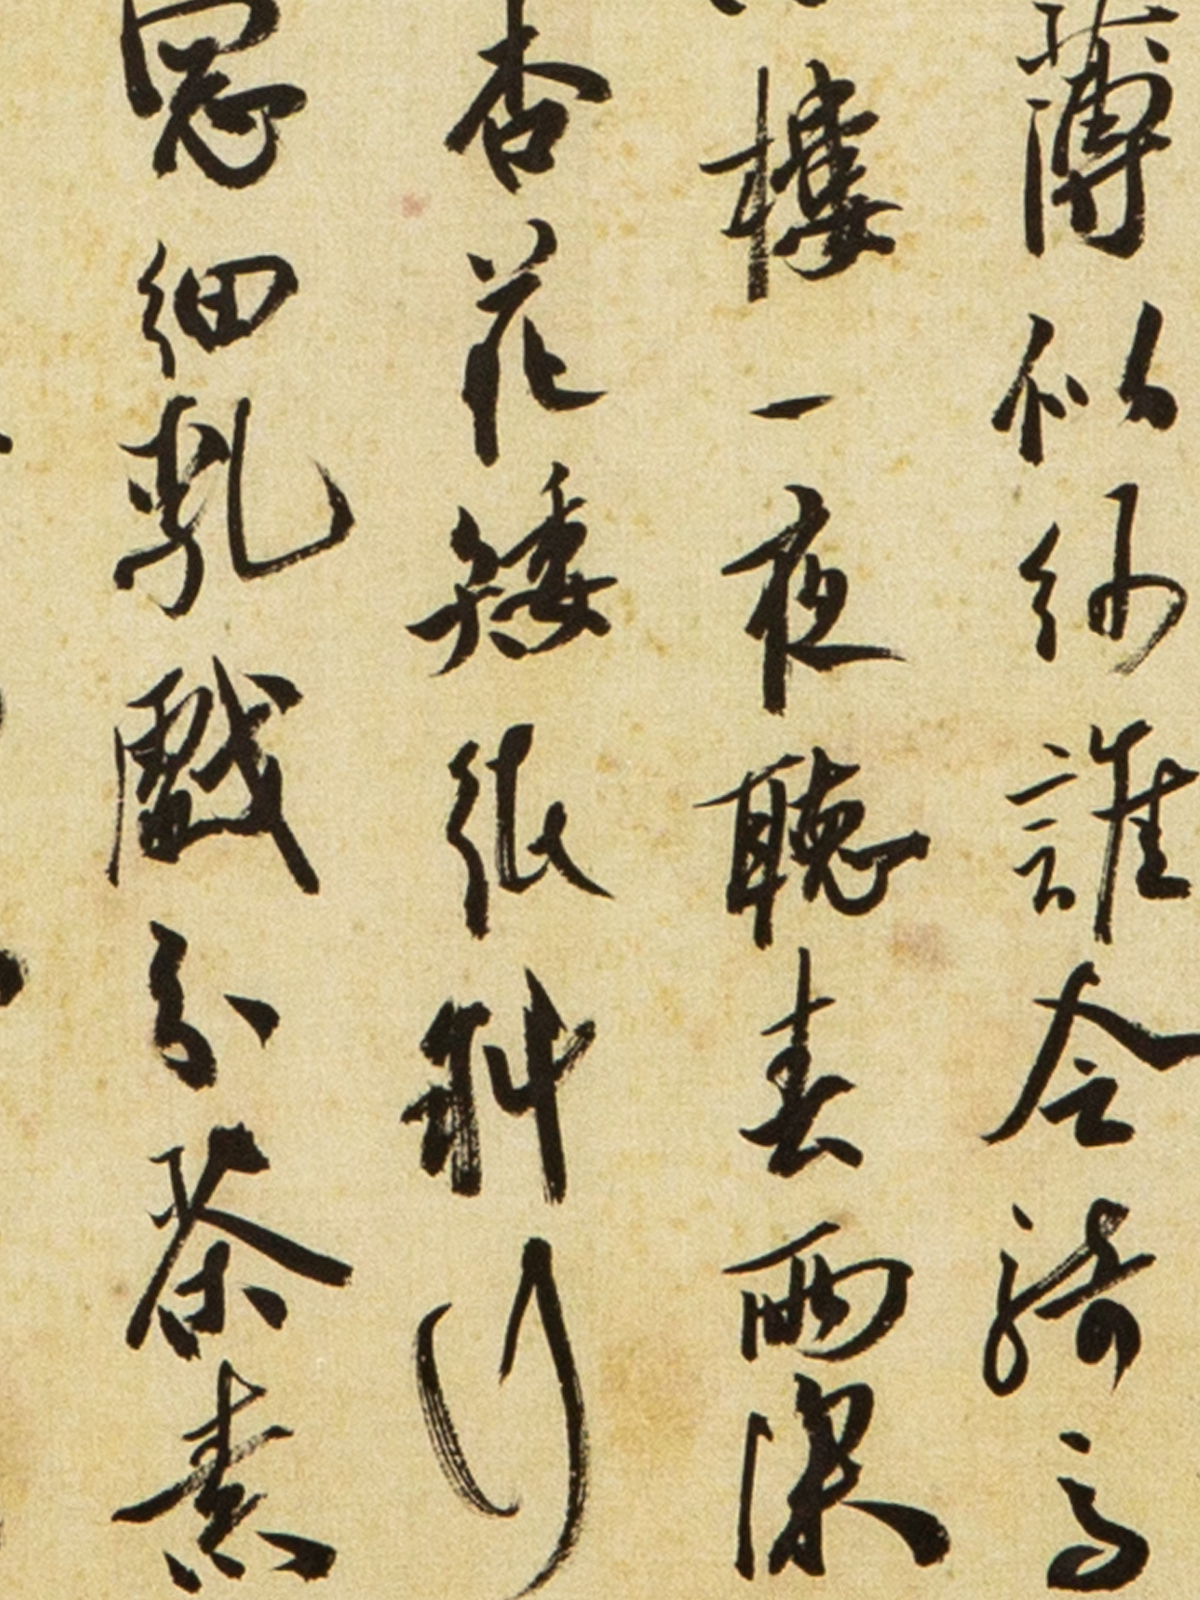 薄似紗誰令騎馬
樓一夜聽春雨深
杏花矮紙斜行
窻細乳戲分茶素